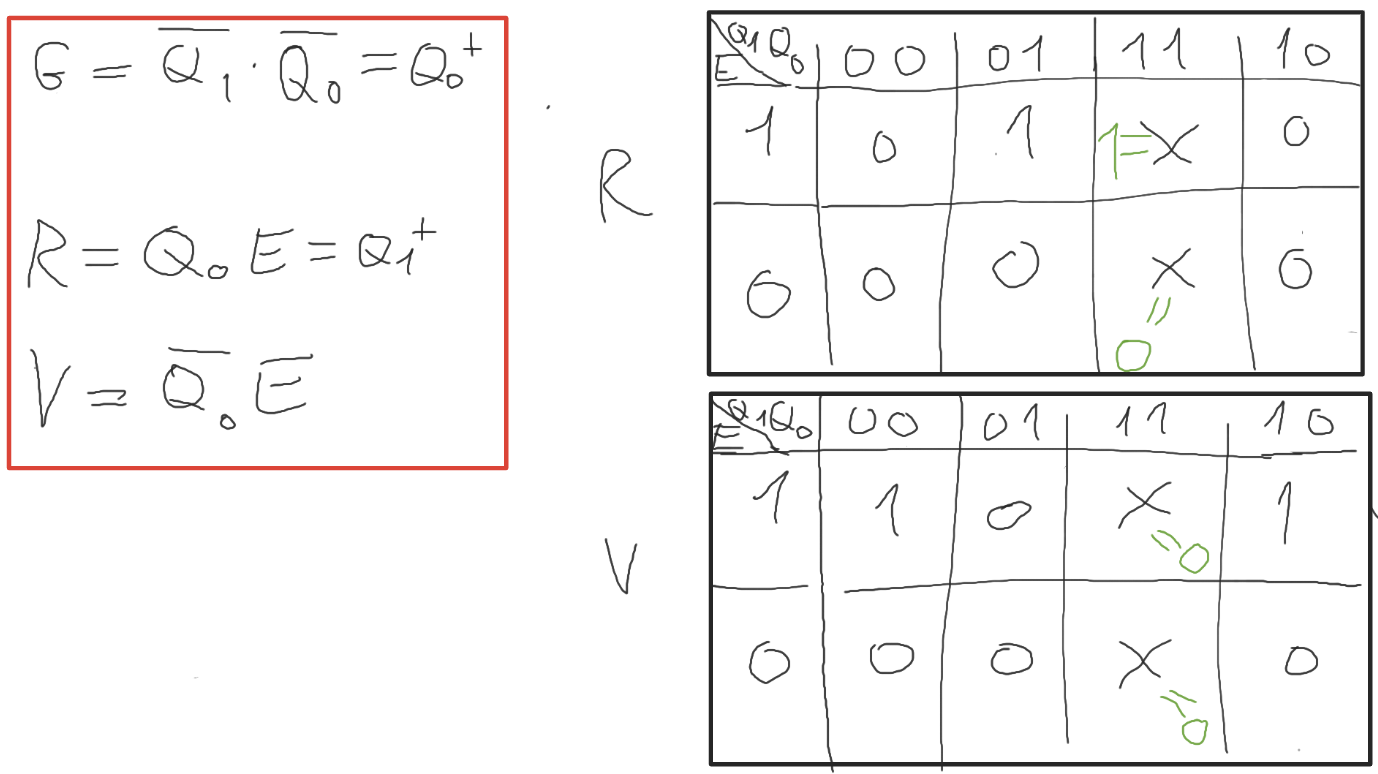 G = Q̅₁ · Q̅₀ = Q₀⁺
R = Q₀ E = Q₁⁺
V = Q̅₀ E̅
R
Q₁Q₀ 00 01 11 10
E
1 0 1 1=X 0
0 0 0 X 0
=
0
V
Q₁Q₀ 00 01 11 10
E
1 1 0 X=0 1
0 0 0 X=0 0